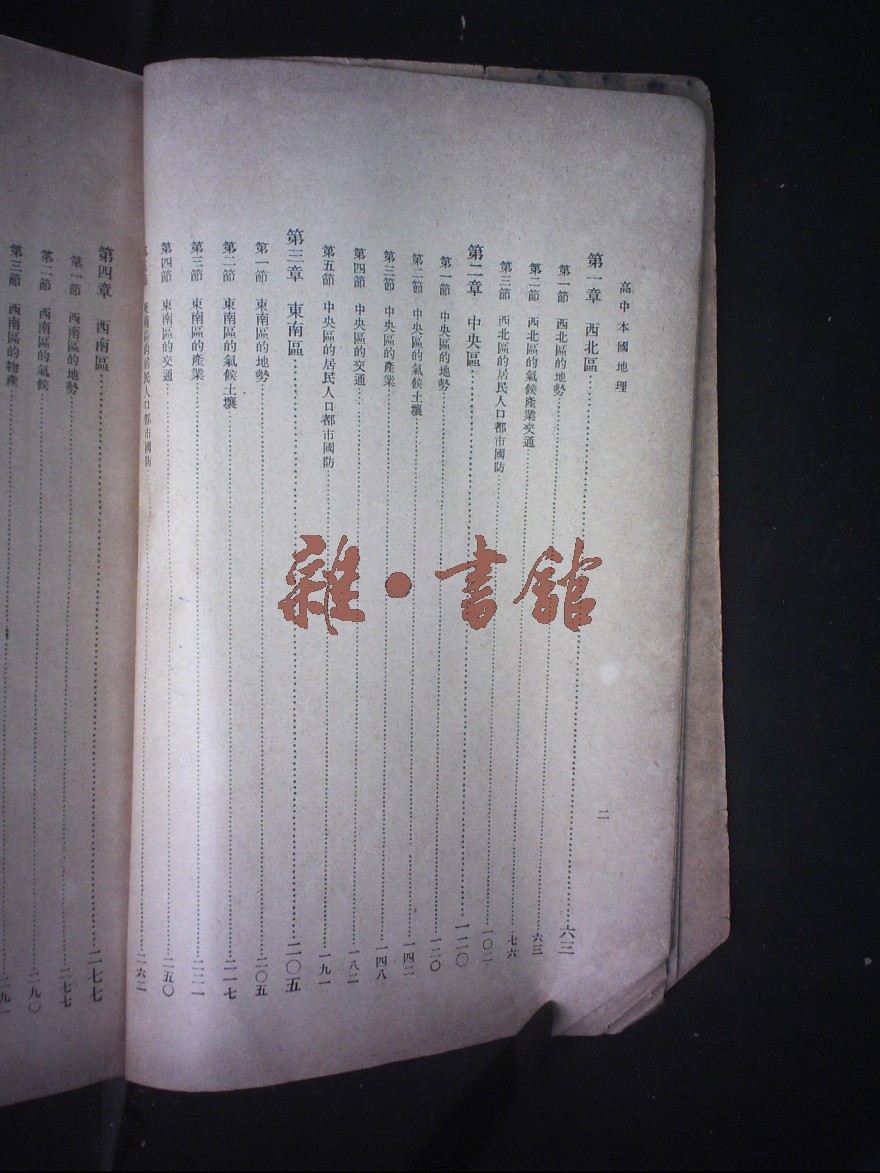 高中本國地理
二
第一章 西北區……六三
第一節 西北區的地勢……六三
第二節 西北區的氣候產業交通……七六
第三節 西北區的居民人口都市國防……一〇二
第二章 中央區……一二〇
第一節 中央區的地勢……一二〇
第二節 中央區的氣候土壤……一四二
第三節 中央區的產業……一四八
第四節 中央區的交通……一八二
第五節 中央區的居民人口都市國防……一九一
第三章 東南區……二〇五
第一節 東南區的地勢……二〇五
第二節 東南區的氣候土壤……二一七
第三節 東南區的產業……二二一
第四節 東南區的交通……二五〇
東南區的居民人口都市國防……二六二
第四章 西南區……二七七
第一節 西南區的地勢……二七七
第二節 西南區的氣候……二九〇
第三節 西南區的物產……二九一
雜·書館